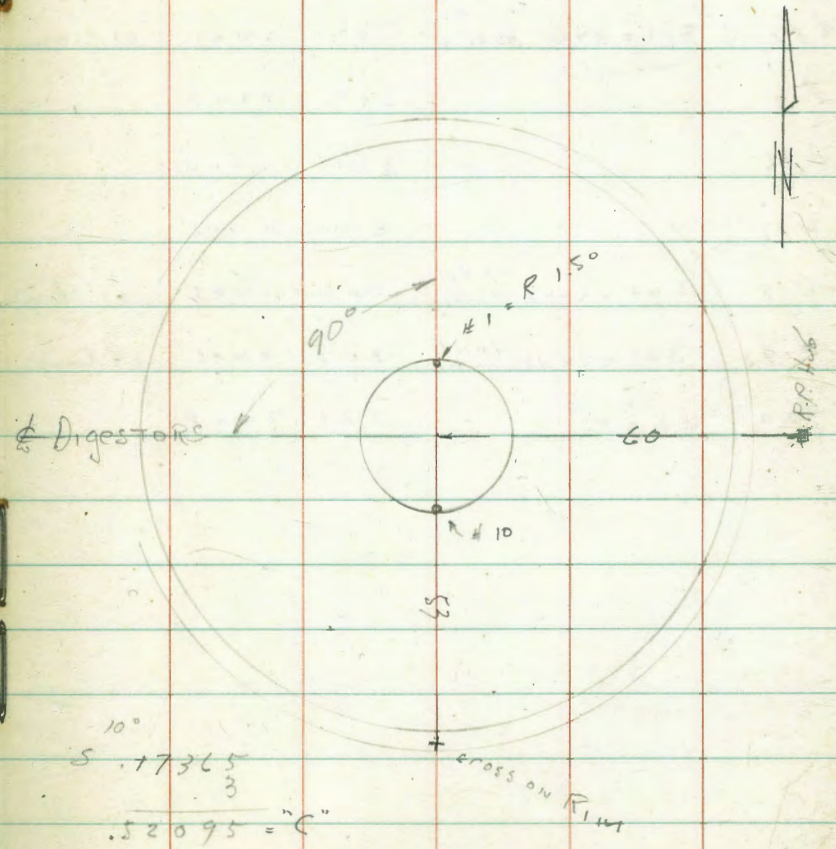 N
90°
# 1 = R 1.50
℄ Digestors
60
R.P. Hub
# 10
53
cross on Rim
10°
S .17365
3
.52095 = "C"